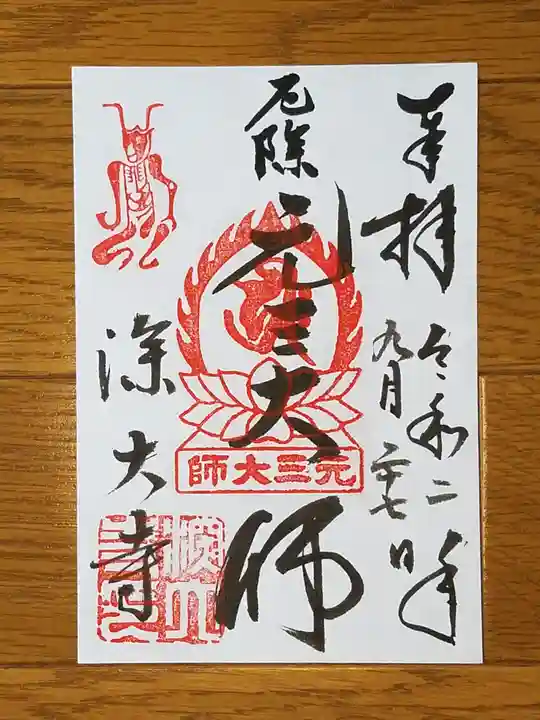 奉拝
令和二年
九月二十七日
厄除
元三大師
師大三元
深大寺